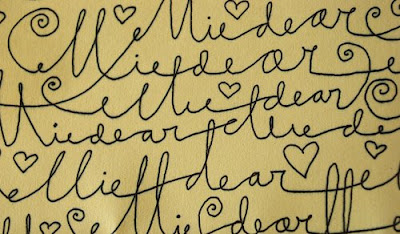 Miedear
Miedear
Mie dear
Miedear Mie de
Mie dear
Mie dear